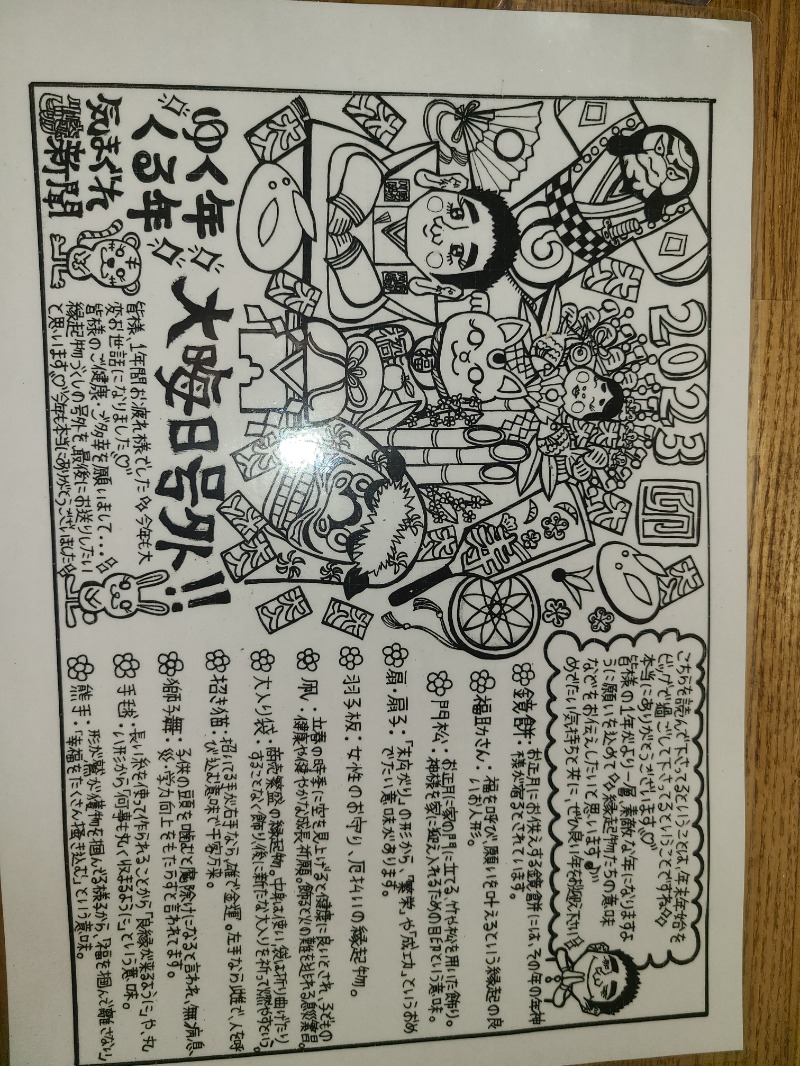 気まぐれ
新聞
ゆく年
くる年
大晦日号外!!
2023
卯
皆様、1年間お疲れ様でした 今年も大
変お世話になりました
皆様のご健康、ご多幸を願いまして...
縁起物づくしの号外を最後にお送りしたい
と思います 今年も本当にありがとうございました
福
こちらを読んで下さってるということは、年末年始を
ビッグで過ごして下さってるということですね
本当にありがとうございます
皆様の1年がより一層、素敵な年になりますよ
うに願いを込めて 縁起物たちの意味
などをお伝えしたいと思います
めでたい気持ちと共に、ぜひ良い年をお迎え下さい
鏡餅:お正月にお供えする鏡餅には、その年の年神
様が宿るとされています。
福助さん:福を呼び、願いを叶えるという縁起の良
いお人形。
門松:お正月に家の門に立てる、竹や松を用いた飾り。
神様を家に迎え入れるための目印という意味。
扇・扇子:「末広がり」の形から、「繁栄」や「成功」というおめ
でたい意味があります。
羽子板:女性のお守り、厄払いの縁起物。
凧:立春の時季に空を見上げると健康に良いとされ、子どもの
健康や健やかな成長祈願。
大入り袋:商売繁盛の縁起物。中身は使い、袋は折り曲げたり
することなく飾り、後に新たな大入りを祈って燃やすという。
招き猫:招いてる手が右なら、雄で金運。左手なら雌で、人を呼
び込む意味で千客万来。
獅子舞:子供の頭を噛むと魔除けになると言われ、無病息
災・学力向上をもたらすと言われてます。
手毬:長い糸を使って作られることから「良縁が来るように」や、丸
い形から「何事も丸く収まるように」という意味。
熊手:形が鷲が獲物を掴んでる様子から、「福を掴んで離さない」
「幸福をたくさん掻き込む」という意味。